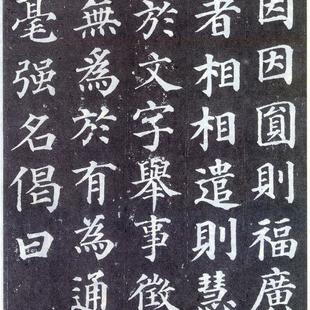 因因圓則福廣
者相相遣則慧
於文字舉事徵
無爲於有為通
毫强名偈曰